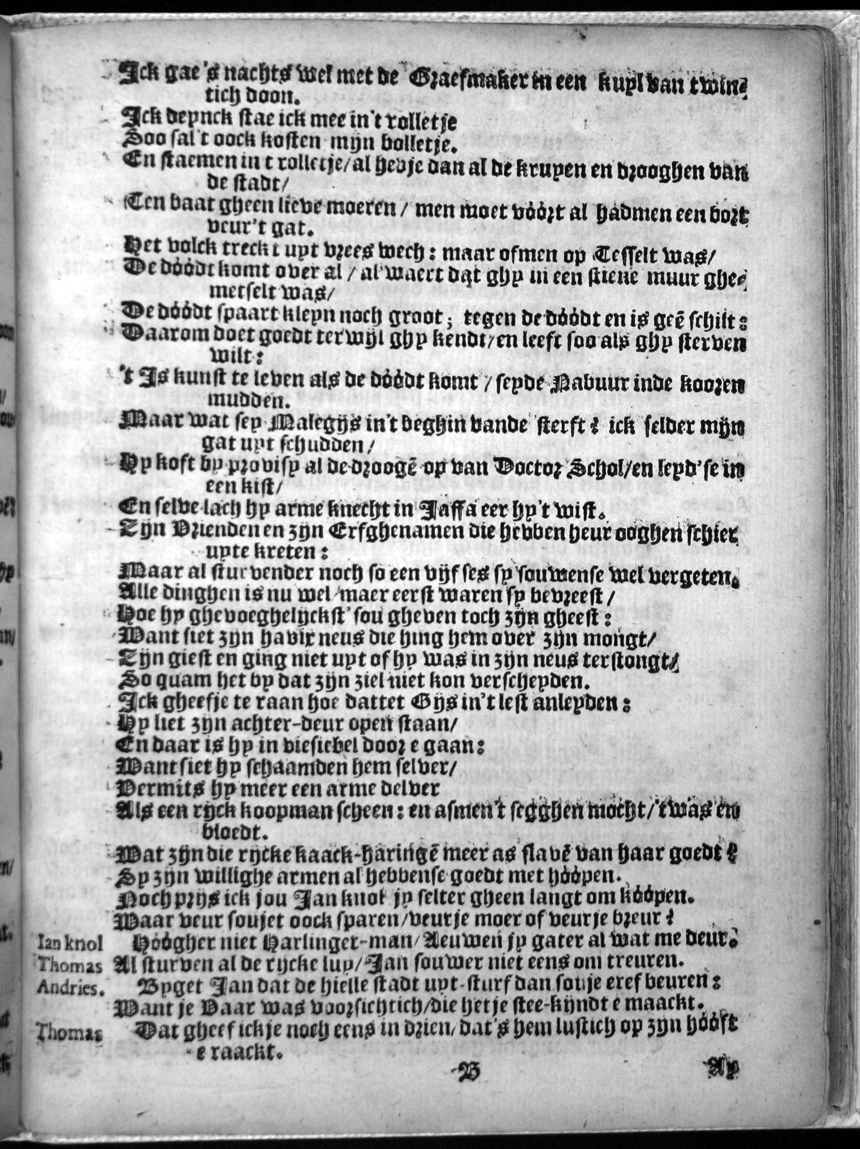 Ick gae's nachts wel met de Graefmaker in een kuyl van twin-
tich doon.
Ick deynck stae ick mee in't rolletje
Soo sal't oock kosten mijn bolletje.
En staemen in t rolletje/al hebje dan al de kruyen en drooghen van
de stadt/
Ten baat gheen lieve moeren / men moet vóórt al hadmen een bort
veur't gat.
Het volck treckt uyt vrees wech: maar ofmen op Tesselt was/
De dóódt komt over al / al waert dat ghy in een stiene muur ghe-
metselt was/
De dóódt spaart kleyn noch groot; tegen de dóódt en is geẽ schilt:
Daarom doet goedt terwijl ghy kendt/en leeft soo als ghy sterven
wilt:
't Is kunst te leven als de dóódt komt / seyde Nabuur inde kooren
mudden.
Maar wat sey Malegijs in't beghin vande sterft? ick selder mijn
gat uyt schudden/
Hy koft by provisy al de droogẽ op van Doctor Schol/en leyd'se in
een kist/
En selve lach hy arme knecht in Jaffa eer hy't wist.
Zijn Vrienden en zijn Erfghenamen die hebben heur ooghen schier
uyte kreten:
Maar al sturvender noch so een vijf ses sy souwense wel vergeten.
Alle dinghen is nu wel maer eerst waren sy bevreest/
Hoe hy ghevoeghelijckst' sou gheven toch zijn gheest:
Want siet zijn havix neus die hing hem over zijn mongt/
Zijn giest en ging niet uyt of hy was in zijn neus terstongt/
So quam het by dat zijn ziel niet kon verscheyden.
Ick gheefje te raan hoe dattet Gijs in't lest anleyden:
Hy liet zijn achter-deur open staan/
En daar is hy in viesiebel door e gaan:
Want siet hy schaamden hem selver/
Vermits hy meer een arme delver
Als een rijck koopman scheen: en asmen't segghen mocht/'twas en
bloedt.
Wat zijn die rijcke kaack-haringẽ meer as slavẽ van haar goedt?
Sy zijn willighe armen al hebbense goedt met hóópen.
Noch prijs ick jou Jan knol jy selter gheen langt om kóópen.
Waar veur soujet oock sparen/veurje moer of veurje breur?
Ian knol Hóógher niet Harlinger-man/Aeuwen jy gater al wat me deur.
Thomas Al sturven al de rijcke luy/Jan souwer niet eens om treuren.
Andries. Byget Jan dat de hielle stadt uyt-sturf dan souje eref beuren:
Want je Vaar was voorsichtich/die hetje stee-kijndt e maackt.
Thomas Dat gheef ick je noch eens in drien/dat's hem lustich op zijn hóóft
e raackt.
B Ay